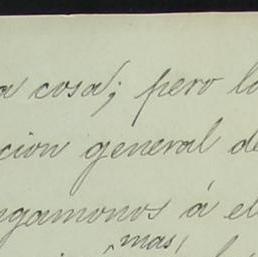 a cosa; pero lo
cion general de
ngamonos á el
mas